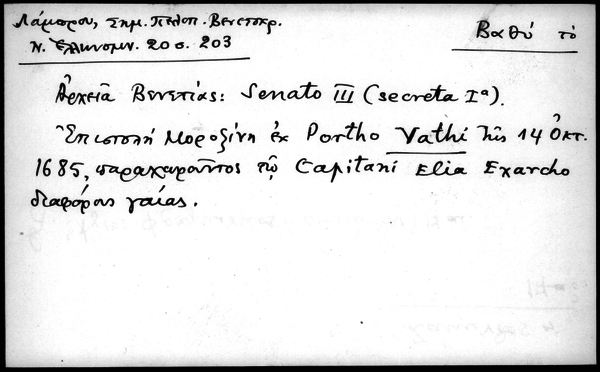 Λάμπρου, Σημ. Πελοπ. Βενετοκρ.
Ν. Ἑλληνομν. 20 σ. 203
Βαθύ τὸ
Ἀρχεῖα Βενετίας: Senato III (secreta Iª).
Ἐπιστολὴ Μοροζίνη ἐκ Portho Vathi τῆς 14 Ὀκτ.
1685, παραχωροῦντος τῷ Capitani Elia Exarcho
διαφόρους γαίας.